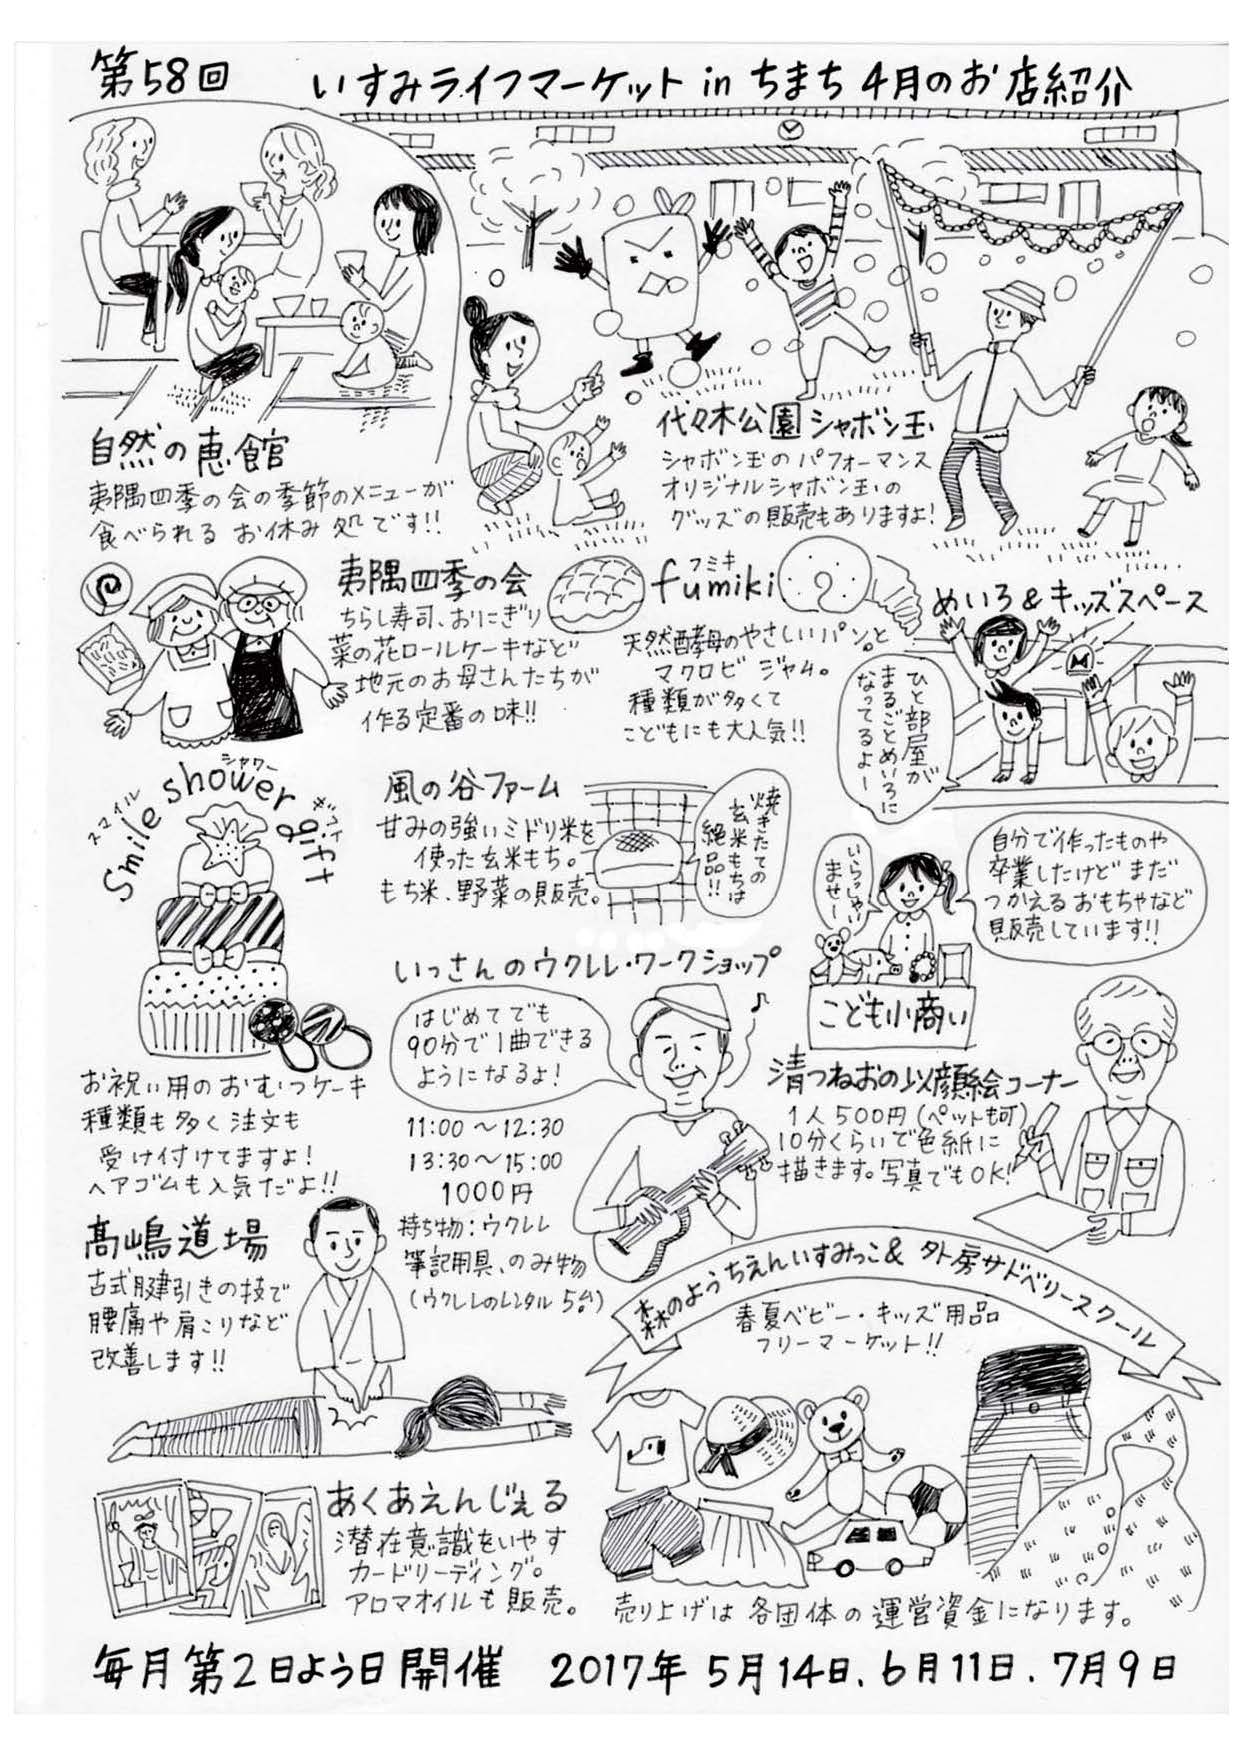 第58回 いすみライフマーケット in ちまち 4月のお店紹介
自然の恵館
夷隅四季の会の季節のメニューが
食べられる お休み処です!!
代々木公園シャボン玉
シャボン玉のパフォーマンス
オリジナルシャボン玉の
グッズの販売もありますよ!
夷隅四季の会
ちらし寿司、おにぎり
菜の花ロールケーキなど
地元のお母さんたちが
作る定番の味!!
フミキ
fumiki
天然酵母のやさしいパンと
マクロビ ジャム。
種類が多くて
こどもにも大人気!!
めいろ&キッズスペース
ひと部屋が
まるごとめいろに
なってるよー
スマイル シャワー ギフト
Smile shower gift
お祝い用のおむつケーキ
種類も多く注文も
受け付けてますよ!
ヘアゴムも人気だよ!!
風の谷ファーム
甘みの強いミドリ米を
使った玄米もち。
もち米、野菜の販売。
焼きたての
玄米もちは
絶品!!
いらっしゃい
ませー
自分で作ったものや
卒業したけどまだ
つかえるおもちゃなど
販売しています!!
こども小商い
いっさんのウクレレ・ワークショップ
はじめてでも
90分で1曲できる
ようになるよ!
11:00～12:30
13:30～15:00
1000円
持ち物:ウクレレ
筆記用具、のみ物
(ウクレレのレンタル5台)
清つねおの似顔絵コーナー
1人500円(ペットも可)
10分くらいで色紙に
描きます。写真でもOK!
髙嶋道場
古式腱引きの技で
腰痛や肩こりなど
改善します!!
森のようちえんいすみっこ& 外房サドベリースクール
春夏ベビー・キッズ用品
フリーマーケット!!
あくあえんじぇる
潜在意識をいやす
カードリーディング。
アロマオイルも販売。
売り上げは各団体の運営資金になります。
毎月第2日よう日開催 2017年5月14日、6月11日、7月9日